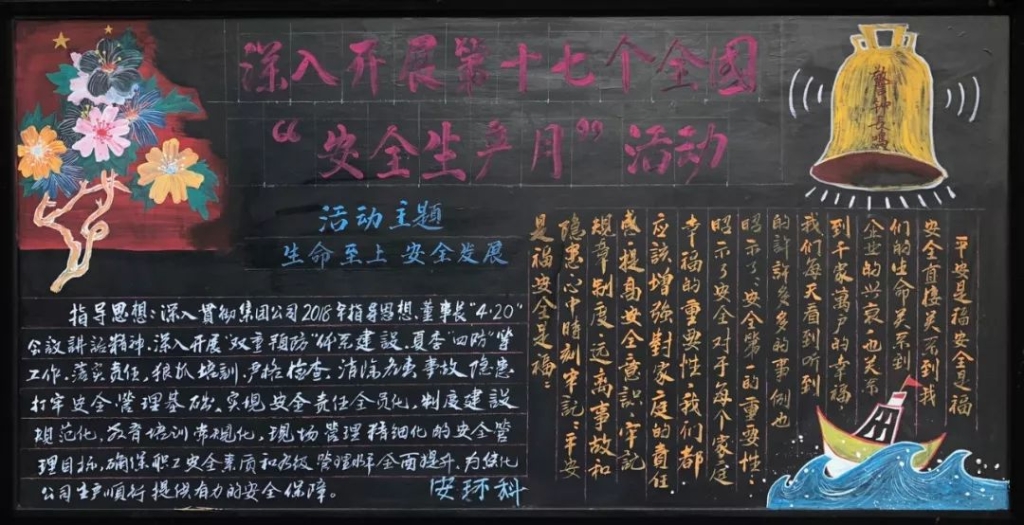 深入开展第十七个全國
“安全生产月”活动
活动主题
生命至上 安全发展
指导思想:深入贯彻集团公司2018年指导思想、董事长"4·20"
会议讲话精神,深入开展"双重预防"体系建设、夏季"四防"等
工作。落实责任,狠抓培训,严格检查,清除危害事故隐患
打牢安全管理基础。实现安全责任全员化,制度建设
规范化,教育培训常规化,现场管理精细化的安全管
理目标,确保职工安全素质和各级管理水平全面提升,为
公司生产顺行提供有力的安全保障。
安环科
警钟長鳴
平安是福安全是福
安全直接关系到我
们的生命关系到
企业的兴衰·也关系
到千家萬户的幸福·
我们每天看到听到
的許許多多的事例也
昭示了:安全第一的重要性·
昭示了安全对于每个家庭
幸福的重要性·我们都
应該增強對家庭的責任
感·提高安全意识·牢記
規章制度·远离事故和
隐患心中時刻牢記:平安
是福安全是福: